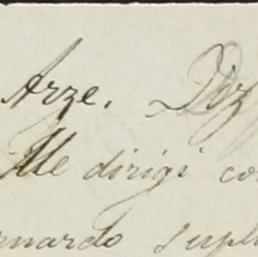 Arze. Diz
Me dirigi co
rnardo supl